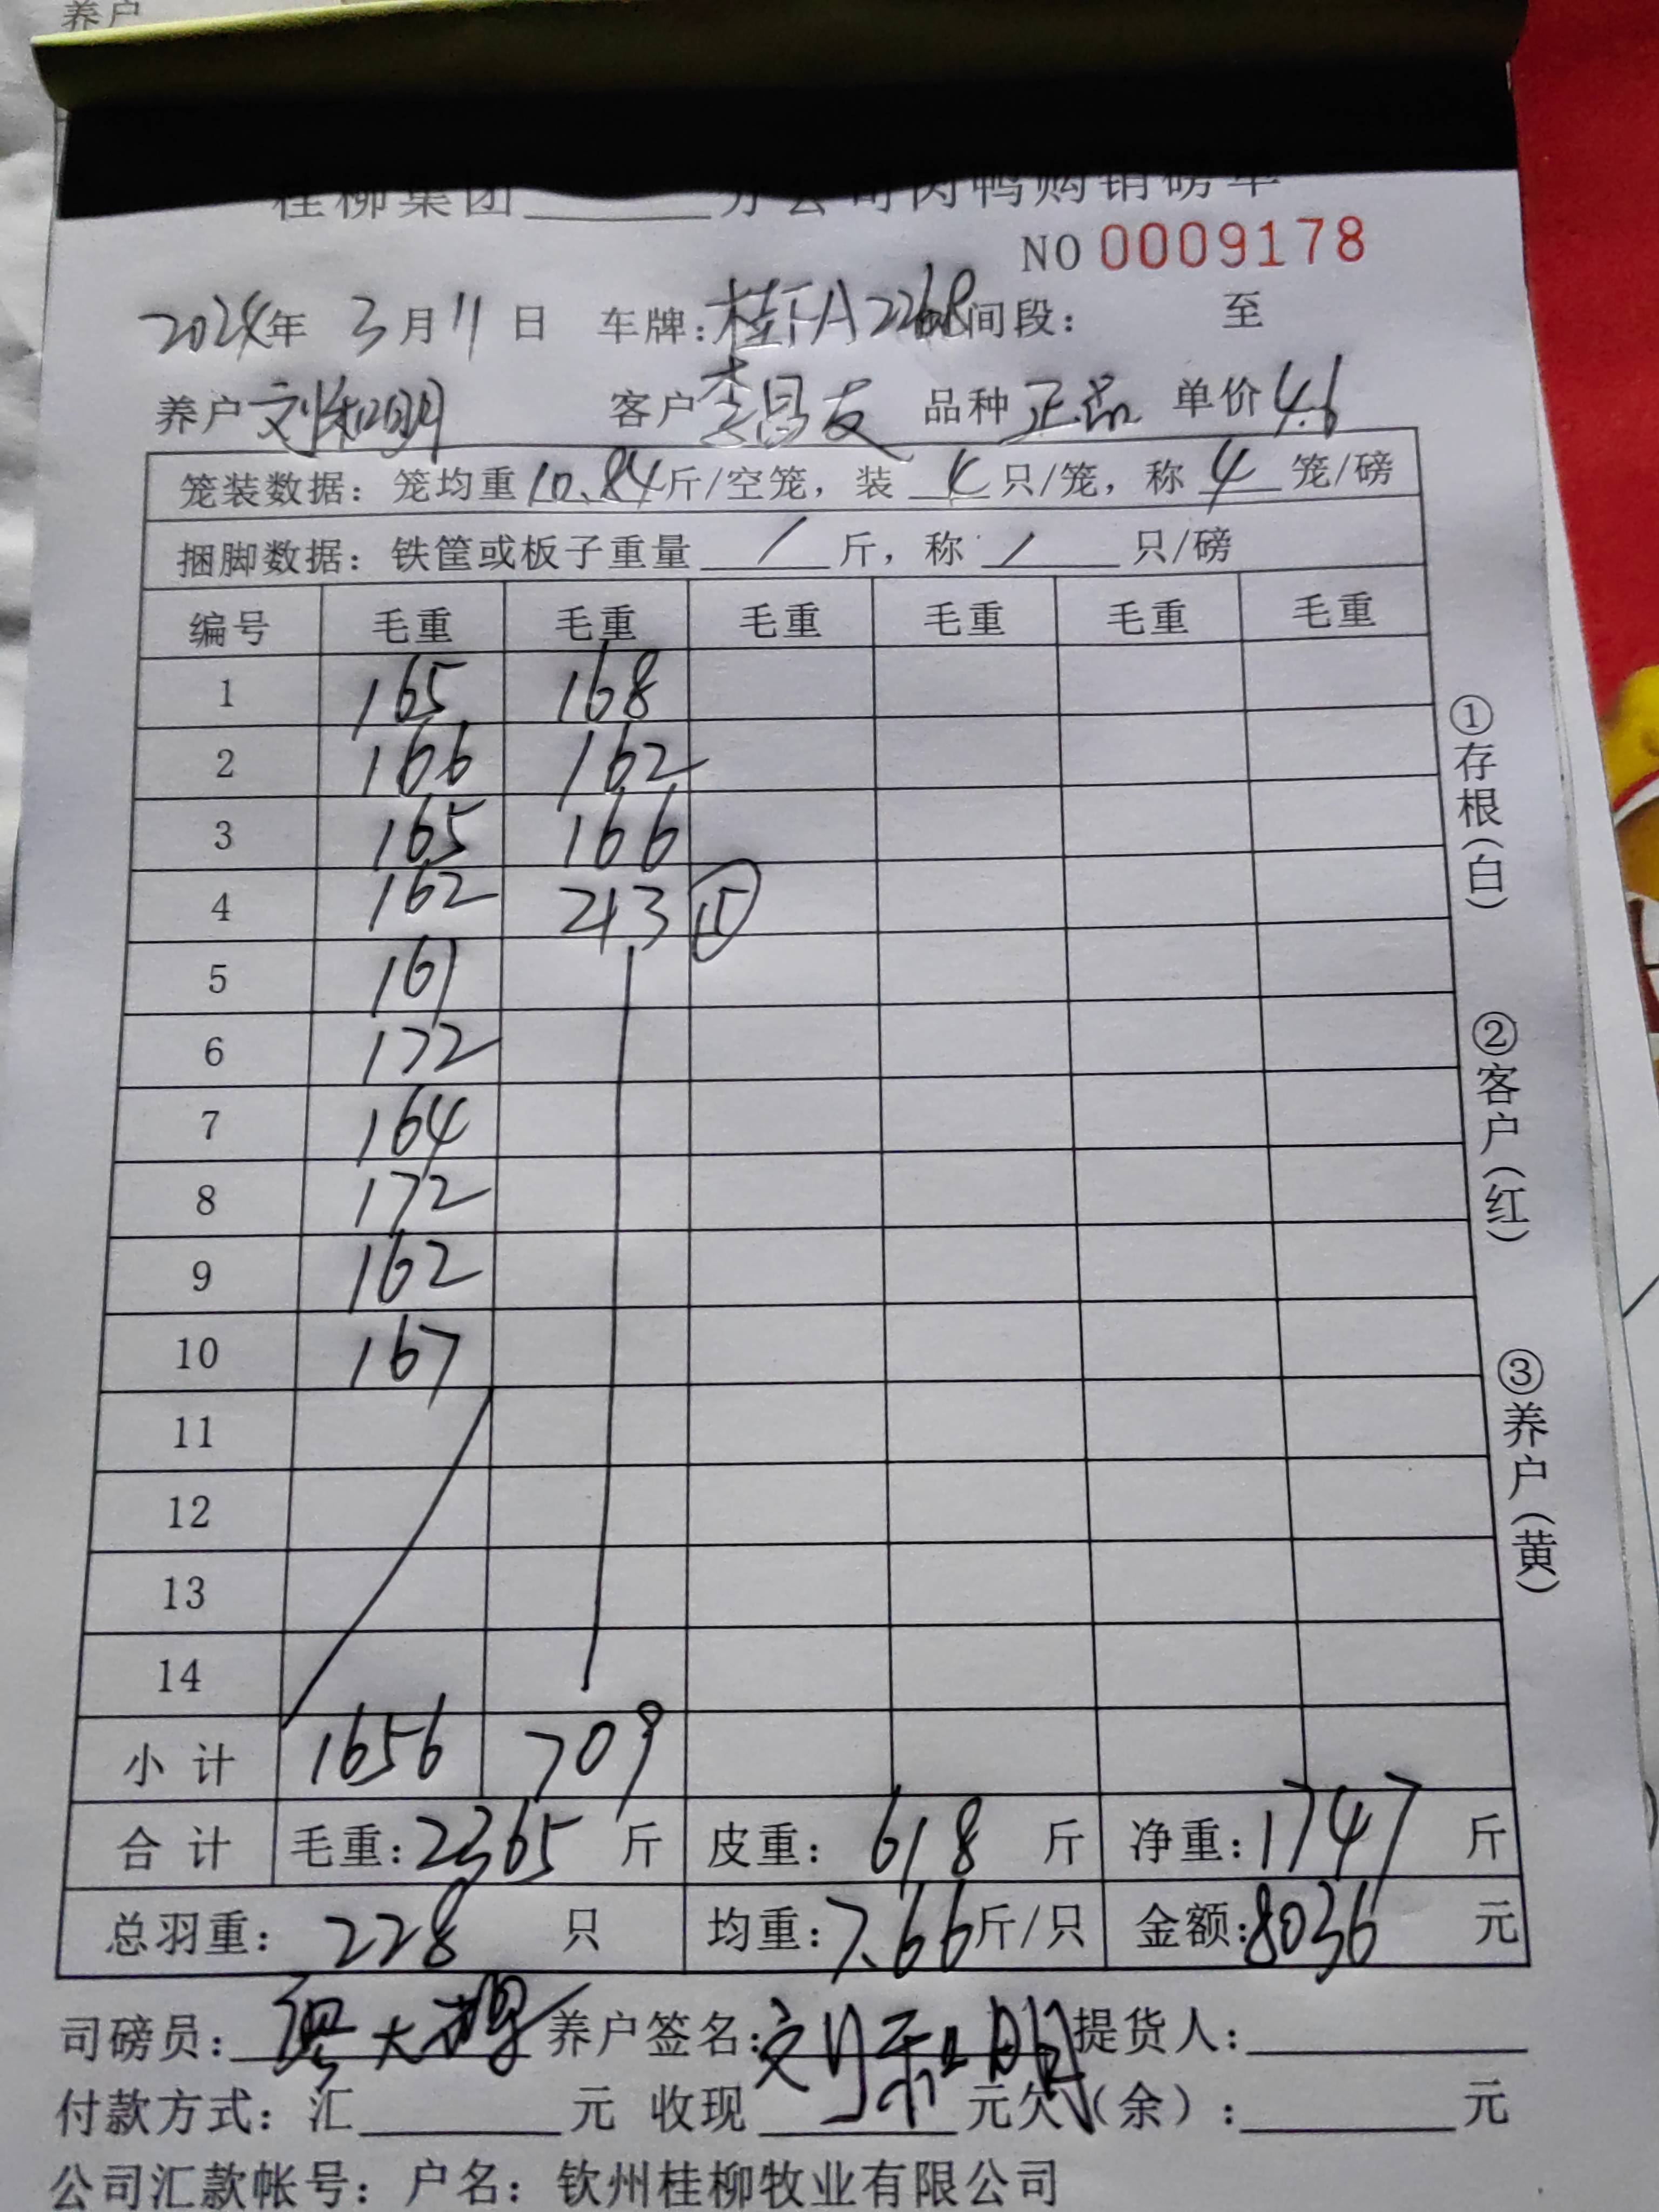 养户
桂柳集团______分公司肉鸭购销磅单
NO 0009178
2024年 3月11日 车牌: 桂 A2268 间段: 至
养户 刘和明 客户 李昌友 品种 正品 单价 4.6
笼装数据: 笼均重 10.84 斤/空笼, 装 只/笼, 称 4 笼/磅
捆脚数据: 铁筐或板子重量 / 斤, 称 / 只/磅
编号 毛重 毛重 毛重 毛重 毛重 毛重
1 165 168
2 166 162
3 165 166
4 162 213 ⑮
5 161
6 172
7 164
8 172
9 162
10 167
11
12
13
14
小计 1656 709
合计 毛重: 2365 斤 皮重: 618 斤 净重: 1747 斤
总羽重: 228 只 均重: 7.66 斤/只 金额: 8036 元
司磅员: 大 养户签名: 刘和明 提货人:
付款方式: 汇______元 收现______元欠(余):______元
公司汇款帐号: 户名: 钦州桂柳牧业有限公司
①存根(白)
②客户(红)
③养户(黄)